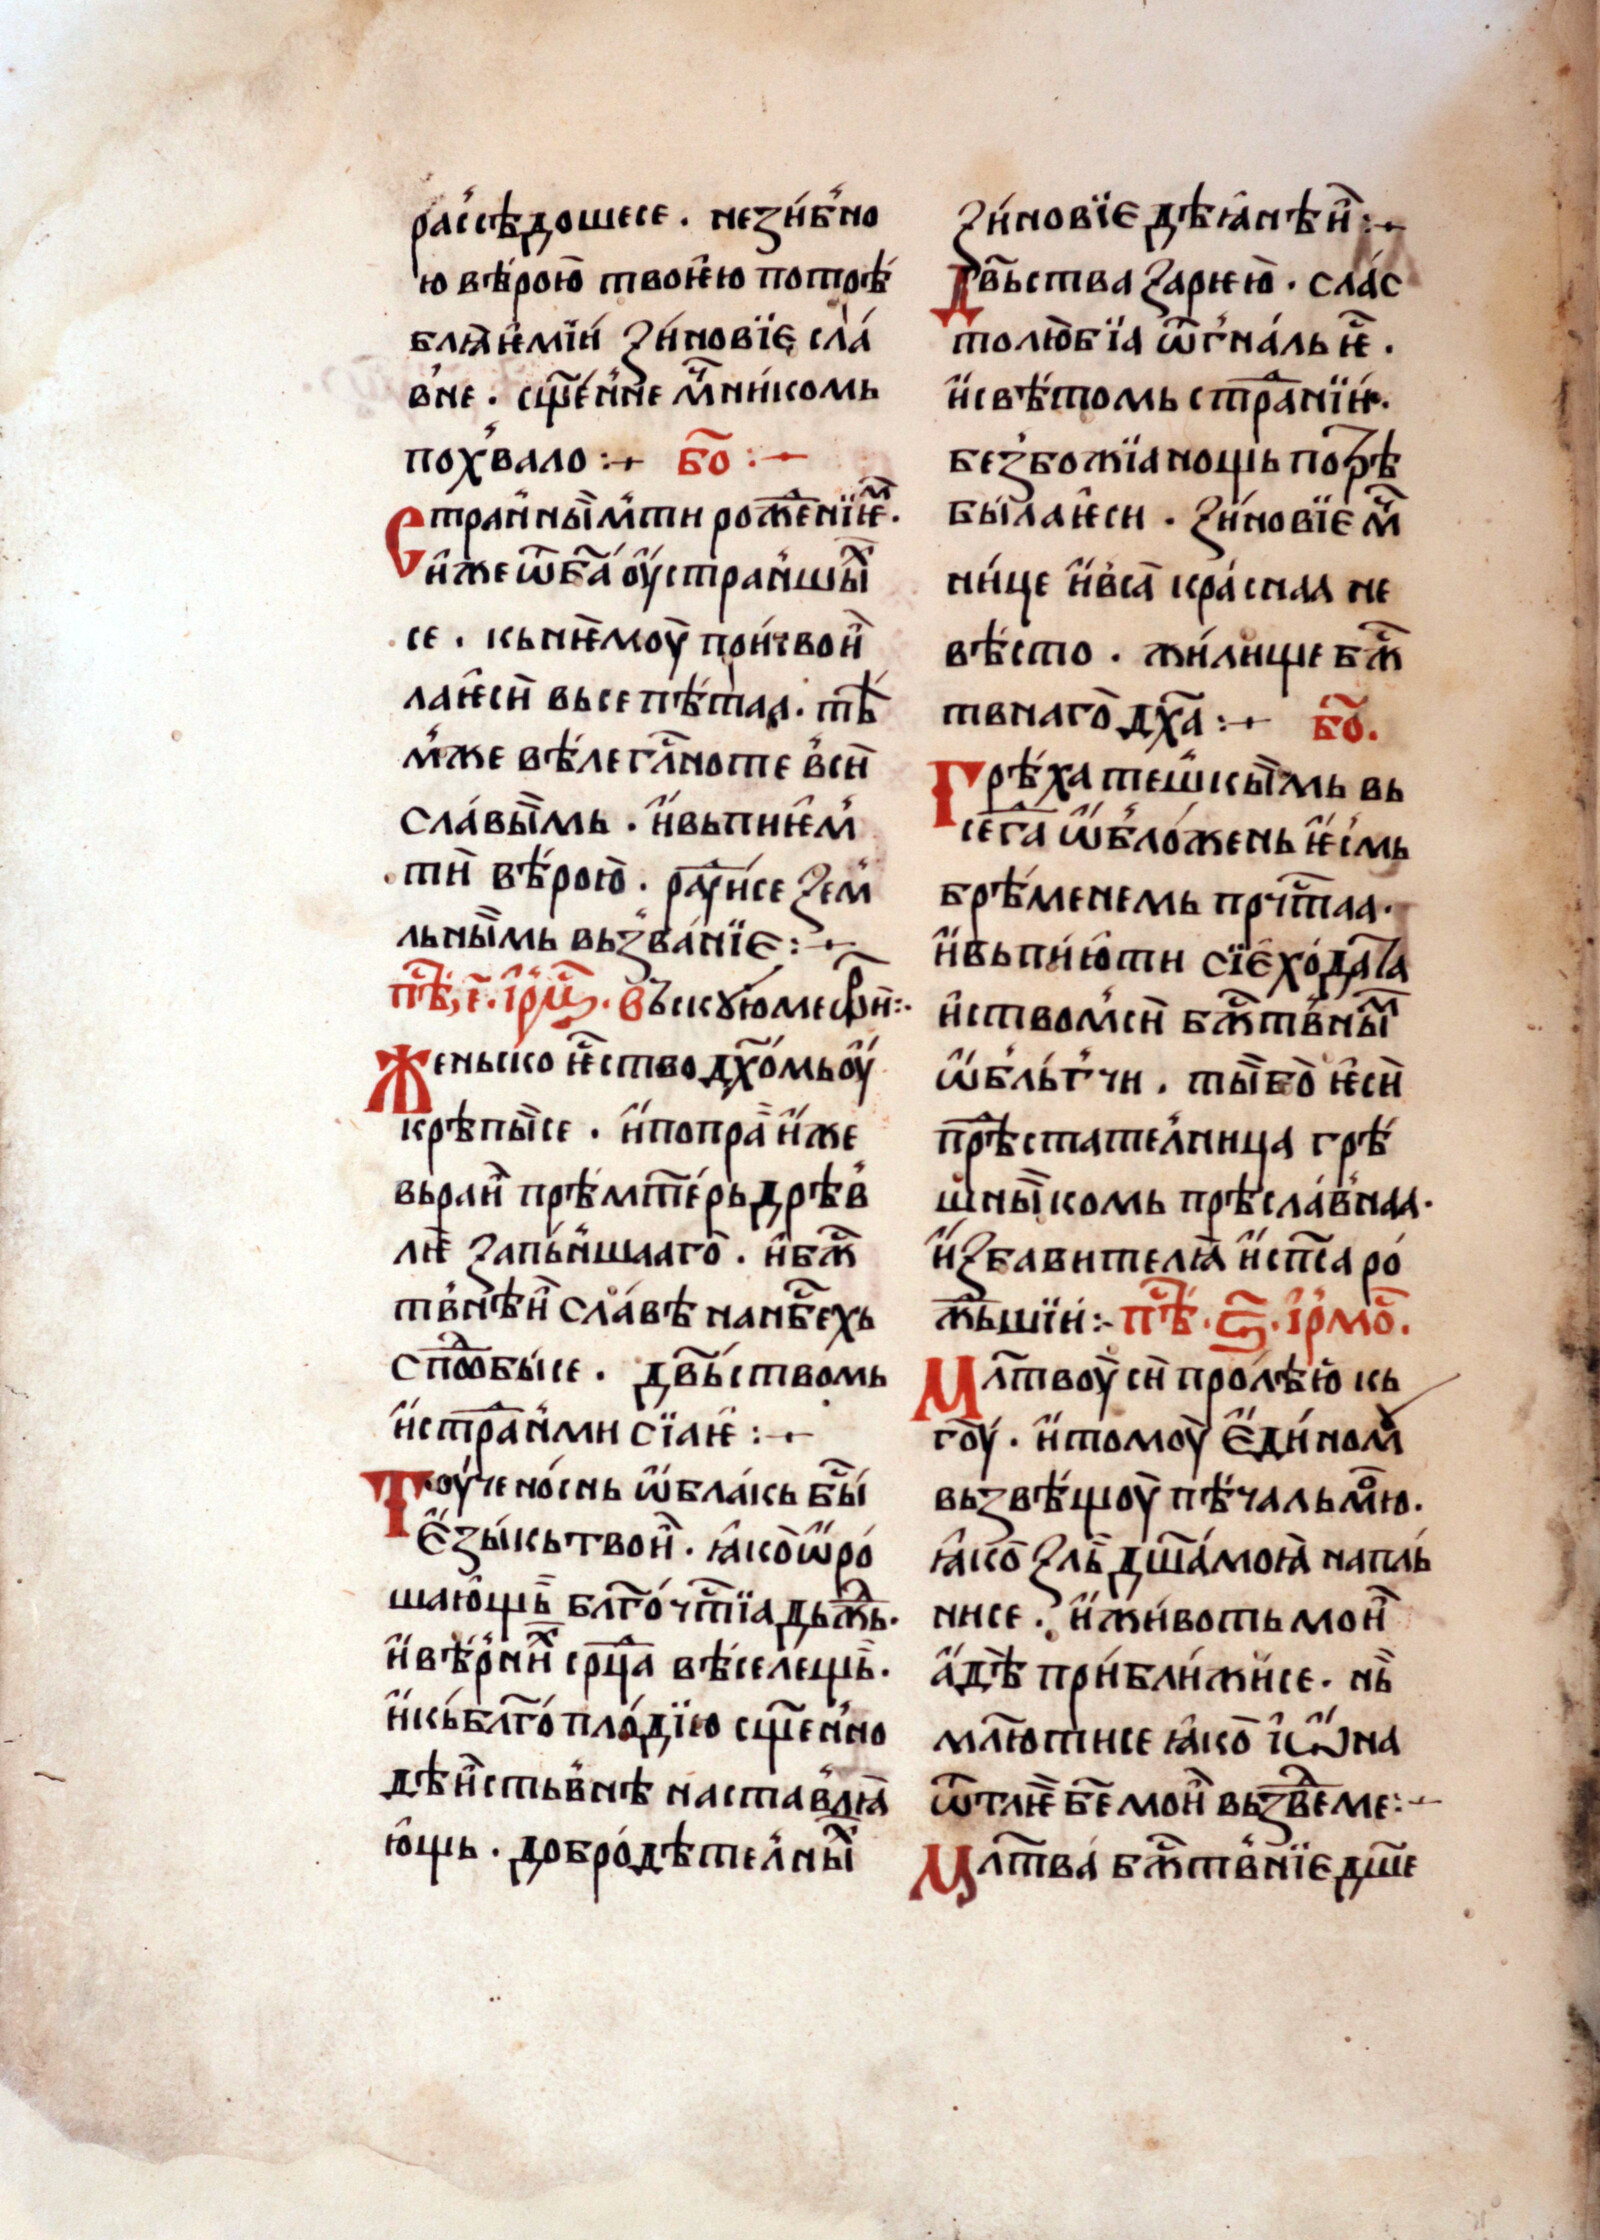 ра́ссѣдошесе . незы́б'но
ю вѣ́рою̀ твоѥ́ю потрѣ́
блꙗ́ѥмїи́ зи́новїе сла́
в'не . сщ҃е́нне м҃чни́комь
пох'вало :+ бо҃ :–
Стран'ны̏мтн рож҃енїѥ҃м .
и҆же ѿ ба҃ оу҆стран'шы̏х
се . кь нѥмоу̀ при́своѝ
ла ѥ҆сѝ вьсепѣ́таа . тѣ́
м'же вѣ́легл҃ноте в'сѝ
сла́вы̏мь . и҆ вьпиѥ҆м'
тѝ вѣ́рою̀ . ра҃уи́се зем'
льны̏мь вьзва́нїе :+
пѣ҃с . е҃ . і҆рмо҃с . Въскꙋ́ю ме ѿри҃н :·
Женьско ѥ҆с҃тство дх҃о́мь оу҆
крѣпы̏се . и҆ попра̀ и҆же
вьраѝ прѣ́мт҃ерь дрѣ́в'
лѥ̀ запь́н'шааго̀ . и҆ бж҃с
тв'нѣ́ѝ сла́вѣ на нб҃сехь
спⷣоби́се . дв҃ь́ствомь
и҆ страⷣн'ми сїаѥ̀ :+
Тоу́чено́снь ѡ҆́блакь бы҃с
е҆зы́кь твоѝ . ꙗ҆ко̀ ѡ҆ро́
шаю҆щь̏ бл҃го́ч҃стїа дь́ж҃ь .
и҆ вѣ́р'ни̏х ср҃ца вѣ́селещь̏ .
и҆ кь бл҃го́пло́дїю сщ҃ен'но
дѣ́ѝстьв'нѣ наста́влꙗ
ю҆щь . добро́дѣтел'ны̏х
зи́новїе дѣꙗ҆нѣ́ѝ :+
Дв҃ьства зарѥю̀ . сла́с
толю̀бїа ѿг'на́ль ѥ҆̀ .
и҆ свѣ́томь страⷣнїи́ .
без'божїа нощь по́грѣ
бы́ла ѥ҆си . зи́новїе м҃ч
ни́це и҆ в'са̀ кра́снаа не
вѣ́сто . жи́лище бж҃с
твнаго̀ дх҃а :+ бо҃ .
Грѣ́ха тешкы̏мь вь
сега̀ ѡ҆б'ло́жень ѥ҆с'мь
брѣ́менемь пр҃чстаа .
и҆ вьпи́ю ти сїе хода҃та
и҆ством' сѝ бж҃ств'ны̏м
ѡ҆б'ль́г'чи . ты̏ бо̀ ѥ҆сѝ
прѣ҃стател'ница грѣ́
шны̏комь прѣсла́в'наа .
и҆збавителꙗ̀ и҆ сп҃са ро́
жⷣьшїи́ :– пѣ҃с . ѕ҃ . і҆рмо҃с .
Мл҃твоу̀ сѝ про́лѣю̀ кь
гоу҃ . и҆ томоу̀ е҆ди́ном'
вьзвѣ́щоу̀ пѣ́чаль мою҃ .
ꙗ҆ко̀ зль̏ дш҃а́ моꙗ̀ напль́
нисе . и҆ жи́воть моѝ
а҆́дѣ при́бли́жи́се . нь̏
мл҃ю ти се ꙗ҆ко̀ і҆ѡ҆на
ѿ тлѥ̀ бе҃ моѝ вьзвⷣеме :–
Мл҃тва́ бж҃ств'нїе дш҃е